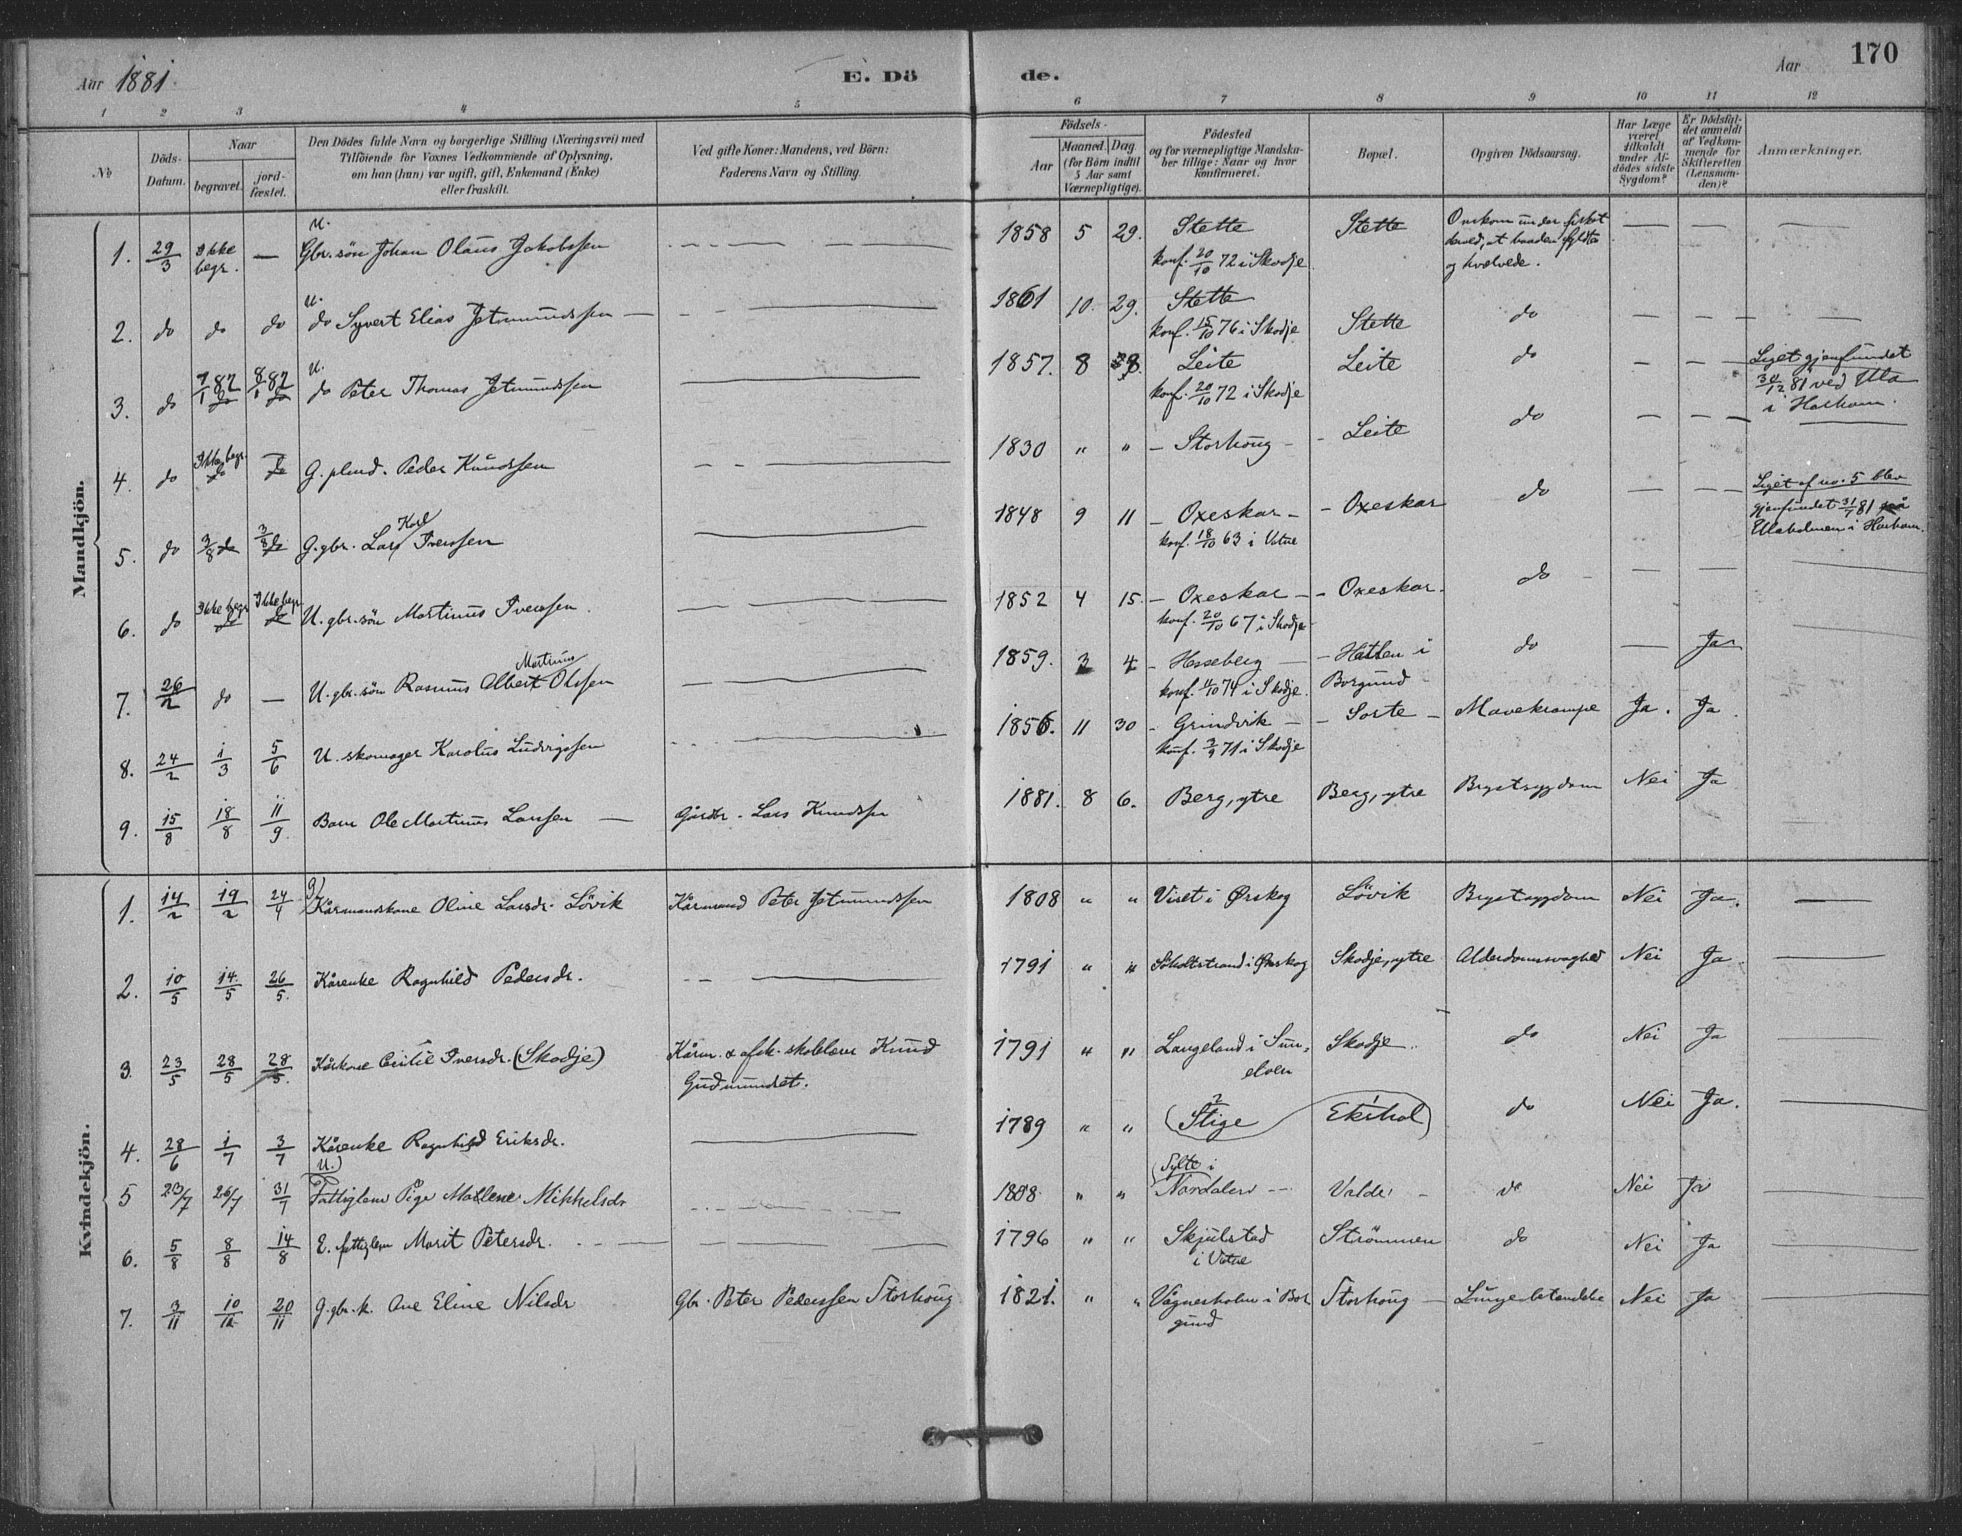 Aar 1881.
E. Dö
de.
Aar
170
1 2 3 4 5 6 7 8 9 10 11 12
No
Döds-Datum.
Naar
begravet.
jord-fæstet.
Den Dödes fulde Navn og borgerlige Stilling (Næringsvei) med
Tilföiende for Voxnes Vedkommende af Oplysning,
om han (hun) var ugift, gift, Enkemand (Enke)
eller fraskilt.
Ved gifte Koner: Mandens, ved Börn:
Faderens Navn og Stilling.
Födsels-
Aar
Maaned. Dag
(for Börn indtil
5 Aar samt
Værnepligtige).
Födested
og for værnepligtige Mandska-
ber tillige: Naar og hvor
Konfirmeret.
Bopæl.
Opgiven Dödsaarsag.
Har Læge
været
tilkaldt
under Af-
dödes sidste
Sygdom?
Er Dödsfal-
det anmeldt
af Vedkom-
mende for
Skifteretten
(Lensman-
den)?
Anmærkninger.
Mandkjön.
1. 29/3 Ikke begr. — U. Gbr.sön Johan Olaus Jakobssen 1858 5 29. Stette Stette Omkom under fisket
konf. 20/10 72 i Skodje derved, at baaden fyldte
og hvælvede.
2. do do do U. do Syvert Elias Jetmundssen 1861 10. 29. Stette Stette do
konf. 15/10 76 i Skodje
3. do 7/1 82 do 8/1 82 do U. do Peter Thomas Jetmundssen 1857. 8 Leite Leite do Liget gjenfundet
konf. 20/10 72 i Skodje 30/12 81 ved Ulla
i Harham.
4. do Ikke begr. do do G. plmd. Peder Knudssen 1830 " " Storhoug Leite do
5. do 3/8 do 3/8 do G. gbr. Lars Karl Iverssen 1848 9 11 Oxeskar Oxeskar do Liget af no. 5 blev
konf. 18/10 63 i Vatne gjenfundet 31/7 81 på
Ullaholmen i Harham.
6. do Ikke begr. do Ikke begr. do U. gbr.sön Martinus Iverssen. 1852 4 15. Oxeskar Oxeskar. do
konf. 20/10 67 i Skodje
7. 26/2 do — U. gbr. sön Rasmus Albert Martinus Olssen 1859. 3 4 Hesseberg Hatlen i Borgund do — Ja
konf. 11/10 74 i Skodje.
8. 24/2 1/3 5/6 U. skomager Karolus Ludvigssen 1856. 11 30 Grindvik Sorte Mavekrampe Ja. Ja
konf. 71 i Skodje
9. 15/8 18/8 11/9 Barn Ole Martinus Larssen Gårdbr. Lars Knudssen 1881. 8 6. Berg, ytre Berg, ytre Brystsygdom Nei Ja
Kvindekjön.
1. 14/2 19/2 24/4 g) Kårmandskone Oline Larsdr. Lövik Kårmand Peter Jetmundssen 1808 " " Viset i Ørskog Lövik Brystsygdom Nei Ja.
2. 10/5 14/5 26/5. Kårenke Ragnhild Pedersdr. 1791 " " Sjøholtstrand i Ørskog Skodje, ytre Alderdomssvaghed Nei Ja
3. 23/5 28/5 28/5. Kårkone Cicilie Iversdr. (Skodje) Kårm. & afsk. skolelærer Knud 1791 " " Langeland i Sun- Skodje do Nei Ja
Gudmundset. elven
4. 28/6 1/7 3/7 Kårenke Ragnhild Eriksdr. 1789 " " 2 Stige 1 Ekshol do Nei Ja.
5 23/7 26/7 31/7 U.) Fattiglem Pige Madlene Mikkelsdr 1808 " " (Sylte i Nordalen) Valde do Nei Ja
6. 5/8 8/8 14/8 E. fattiglem Marit Petersdr. 1796 " " Skjelstad Strömmen do Nei Ja
i Vatne
7. 3/11 10/12 20/11 G. gbr. k. Ane Eline Nilsdr Gbr. Peter Pederssen Storhoug 1821. " " Vågnesholm i Bor Storhoug Lungebetændelse Nei Ja
gund